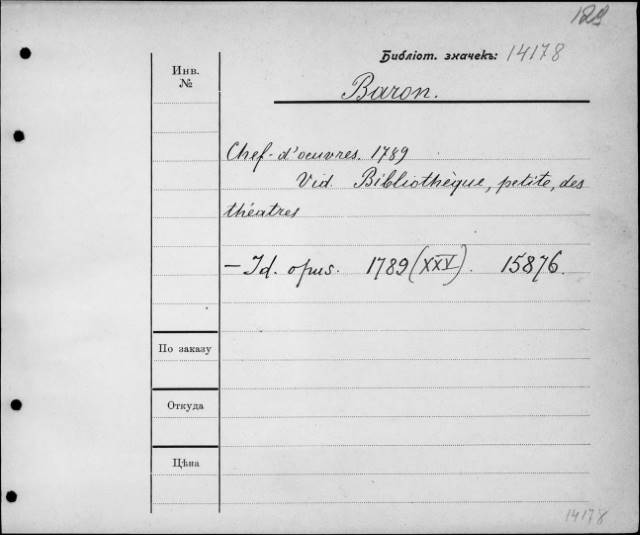 Библіот. значекъ: 14178
Инв.
№
Baron.
Chef-d'oeuvres. 1789
Vid. Bibliothèque, petite, des
théatres
— Id. opus. 1789 (XXV). 15876.
По заказу
Откуда
Цѣна
14178